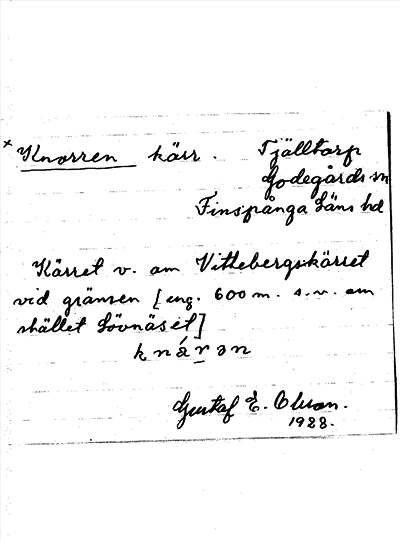 x Knorren kärr. Tjälltorp
Godegårds sn
Finspånga Läns hd
Kärret v. om Vittebergskärret
vid gränsen [eng. 600 m. s.v. om
stället Lövnäset]
knárən
Gustaf E. Olson.
1928.